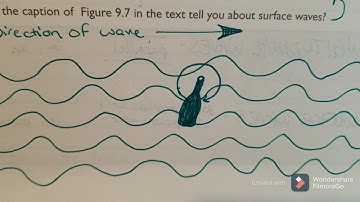 the caption of Figure 9.7 in the text tell you about surface waves?
Direction of wave
Created with
Wondershare
FilmoraGo